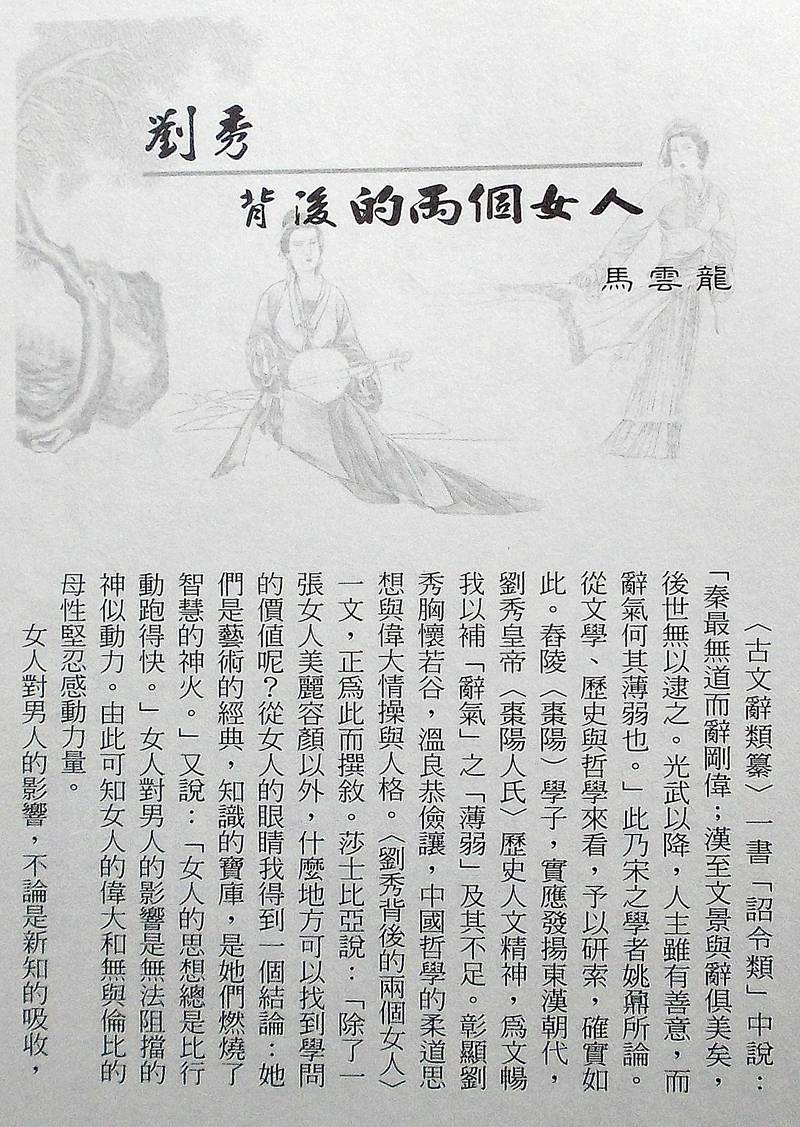 劉秀
背後的兩個女人
馬雲龍
〈古文辭類纂〉一書「詔令類」中說：
「秦最無道而辭剛偉；漢至文景與辭俱美矣，
後世無以逮之。光武以降，人主雖有善意，而
辭氣何其薄弱也。」此乃宋之學者姚鼐所論。
從文學、歷史與哲學來看，予以研索，確實如
此。舂陵〈棗陽〉學子，實應發揚東漢朝代，
劉秀皇帝〈棗陽人氏〉歷史人文精神，為文暢
我以補「辭氣」之「薄弱」及其不足。彰顯劉
秀胸懷若谷，溫良恭儉讓，中國哲學的柔道思
想與偉大情操與人格。〈劉秀背後的兩個女人〉
一文，正為此而撰敘。莎士比亞說：「除了一
張女人美麗容顏以外，什麼地方可以找到學問
的價值呢？從女人的眼睛我得到一個結論：她
們是藝術的經典，知識的寶庫，是她們燃燒了
智慧的神火。」又說：「女人的思想總是比行
動跑得快。」女人對男人的影響是無法阻擋的
神似動力。由此可知女人的偉大和無與倫比的
母性堅忍感動力量。
女人對男人的影響，不論是新知的吸收，